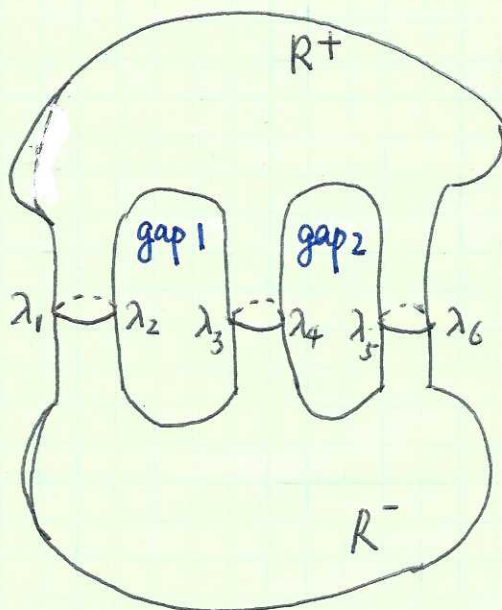 R⁺
gap 1 gap 2
λ₁ λ₂ λ₃ λ₄ λ₅ λ₆
R⁻